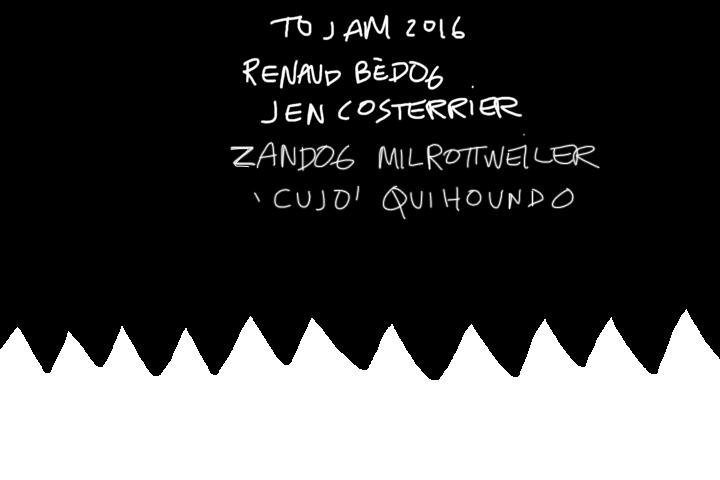 TO JAM 2016
RENAUD BÈDOG
JEN COSTERRIER
ZANDOG MILROTTWEILER
'CUJO' QUIHOUNDO